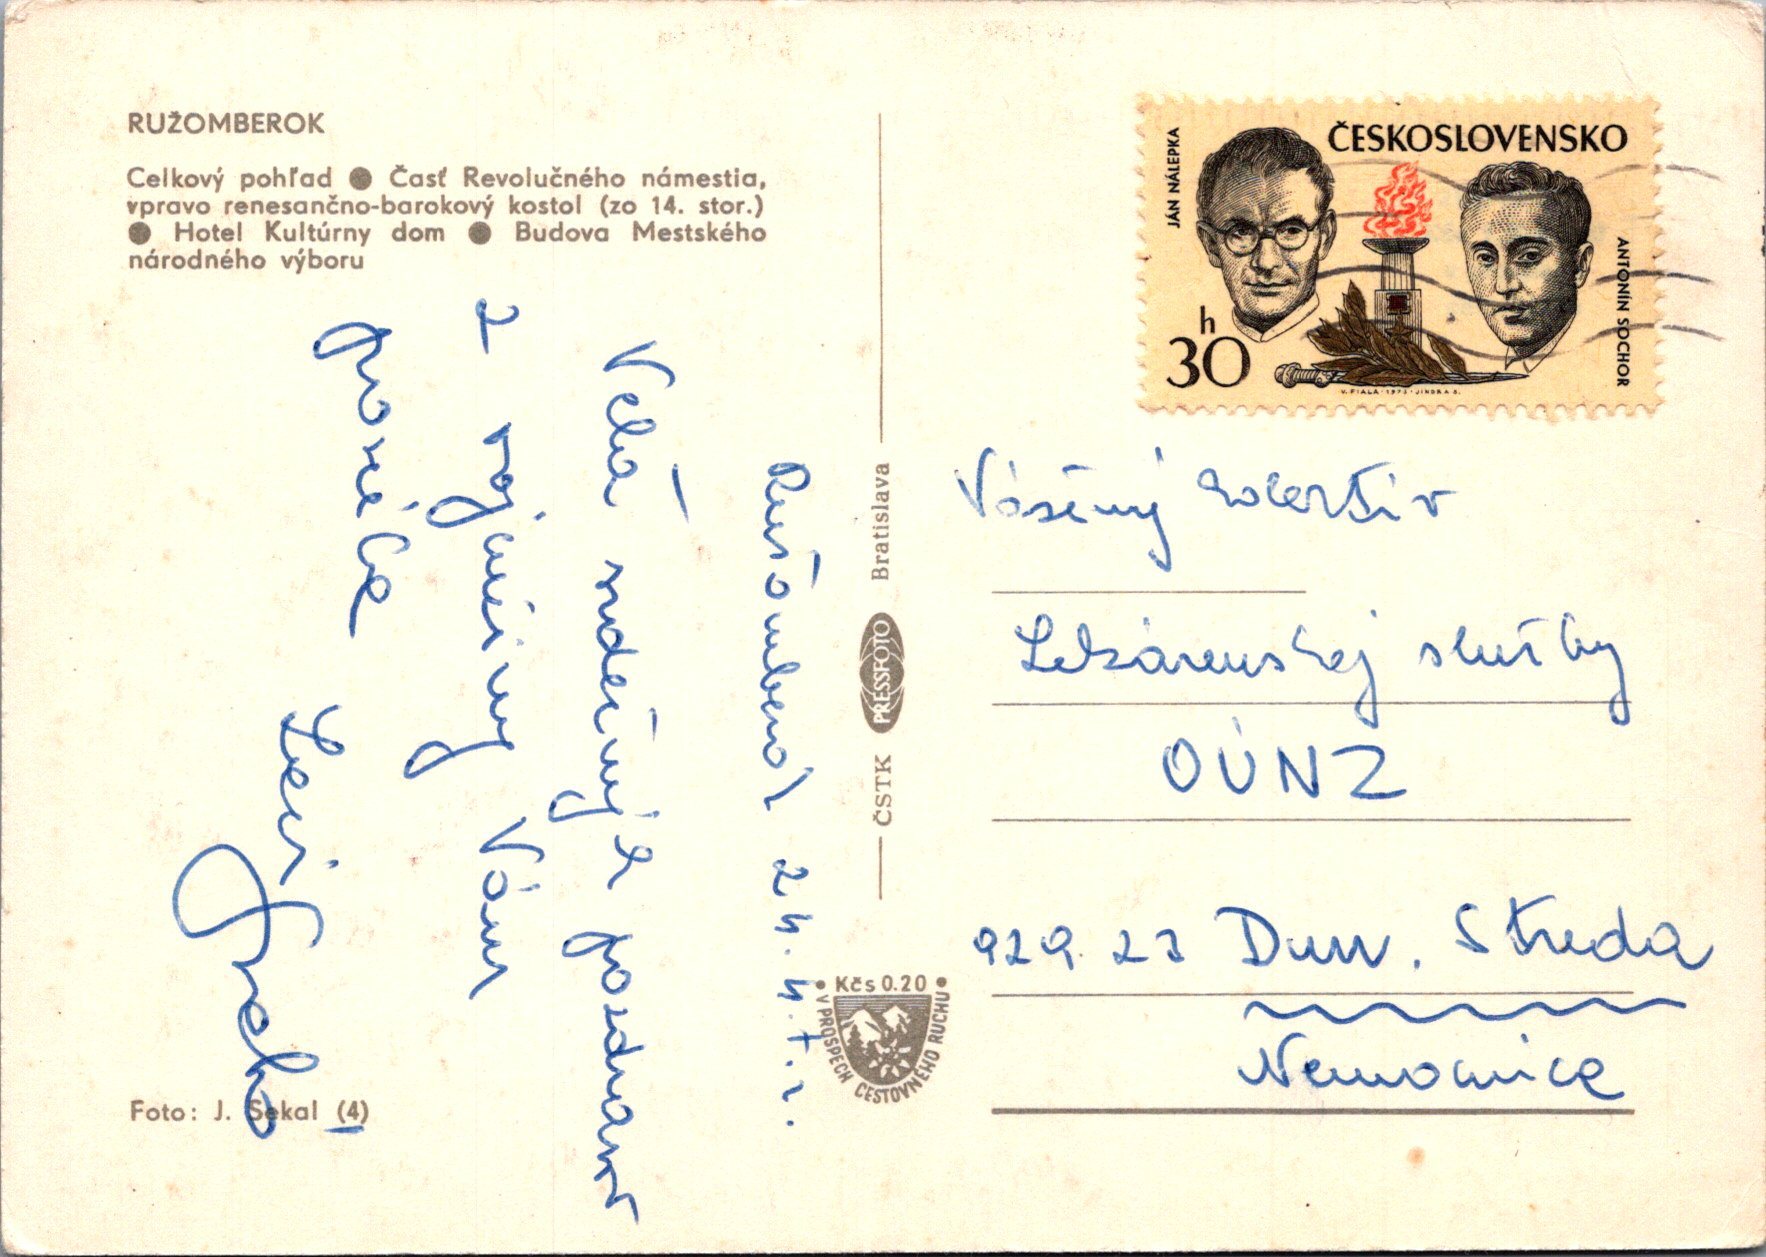 RUŽOMBEROK
Celkový pohľad ● Časť Revolučného námestia,
vpravo renesančno-barokový kostol (zo 14. stor.)
● Hotel Kultúrny dom ● Budova Mestského
národného výboru
Ružomberok 24.4.
Veľa srdečných pozdravov
z vojenčiny Vám
posiela
Foto: J. Sekal (4)
ČSTK PRESSFOTO Bratislava
• Kčs 0.20 •
V PROSPECH CESTOVNÉHO RUCHU
ČESKOSLOVENSKO
JÁN NÁLEPKA
ANTONÍN SOCHOR
30 h
V. FIALA · 1973 · JINDRA S.
Vážený kolektív
Lekárenskej služby
OÚNZ
929 23 Dun. Streda
Nemocnica